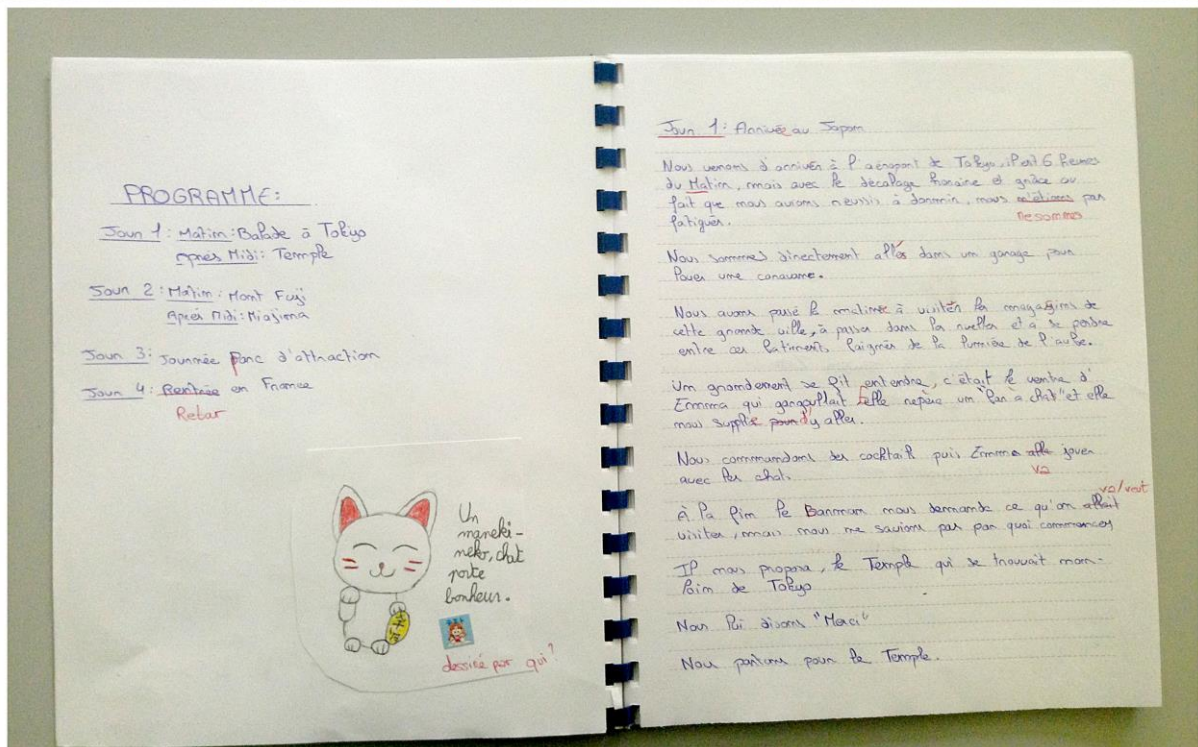 PROGRAMME:
Jour 1 : Matin : Balade à Tokyo
Après Midi : Temple
Jour 2 : Matin : Mont Fuji
Après Midi : Miajima
Jour 3 : Journée parc d'attraction
Jour 4 : Rentrée en France
Retour
Un
maneki-
neko, chat
porte
bonheur.
dessiné par qui ?
Jour 1 : Arrivée au Japon
Nous venons d'arriver à l'aéroport de Tokyo, il est 6 heures
du Matin, mais avec le décalage horaire et grâce au
fait que nous avions réussis à dormir, nous n'étions pas
ne sommes
fatigués.
Nous sommes directement allés dans un garage pour
louer une caravane.
Nous avons passé la matinée à visiter les magasins de
cette grande ville, à passer dans la ruelles et à se perdre
entre ces batiments baignés de la lumière de l'aube.
Un grondement se fit entendre, c'était le ventre d'
Emma qui gargouillait elle repère un "Bar à chat" et elle
nous supplie d'y aller.
Nous commandons des cocktails puis Emma alla jouer
va
avec les chats.
va/veut
À la fin le Barman nous demande ce qu'on allait
visiter, mais nous ne savions pas par quoi commencer
Il nous proposa, le Temple qui se trouvait non-
loin de Tokyo
Nous lui disons "Merci"
Nous partons pour le Temple.